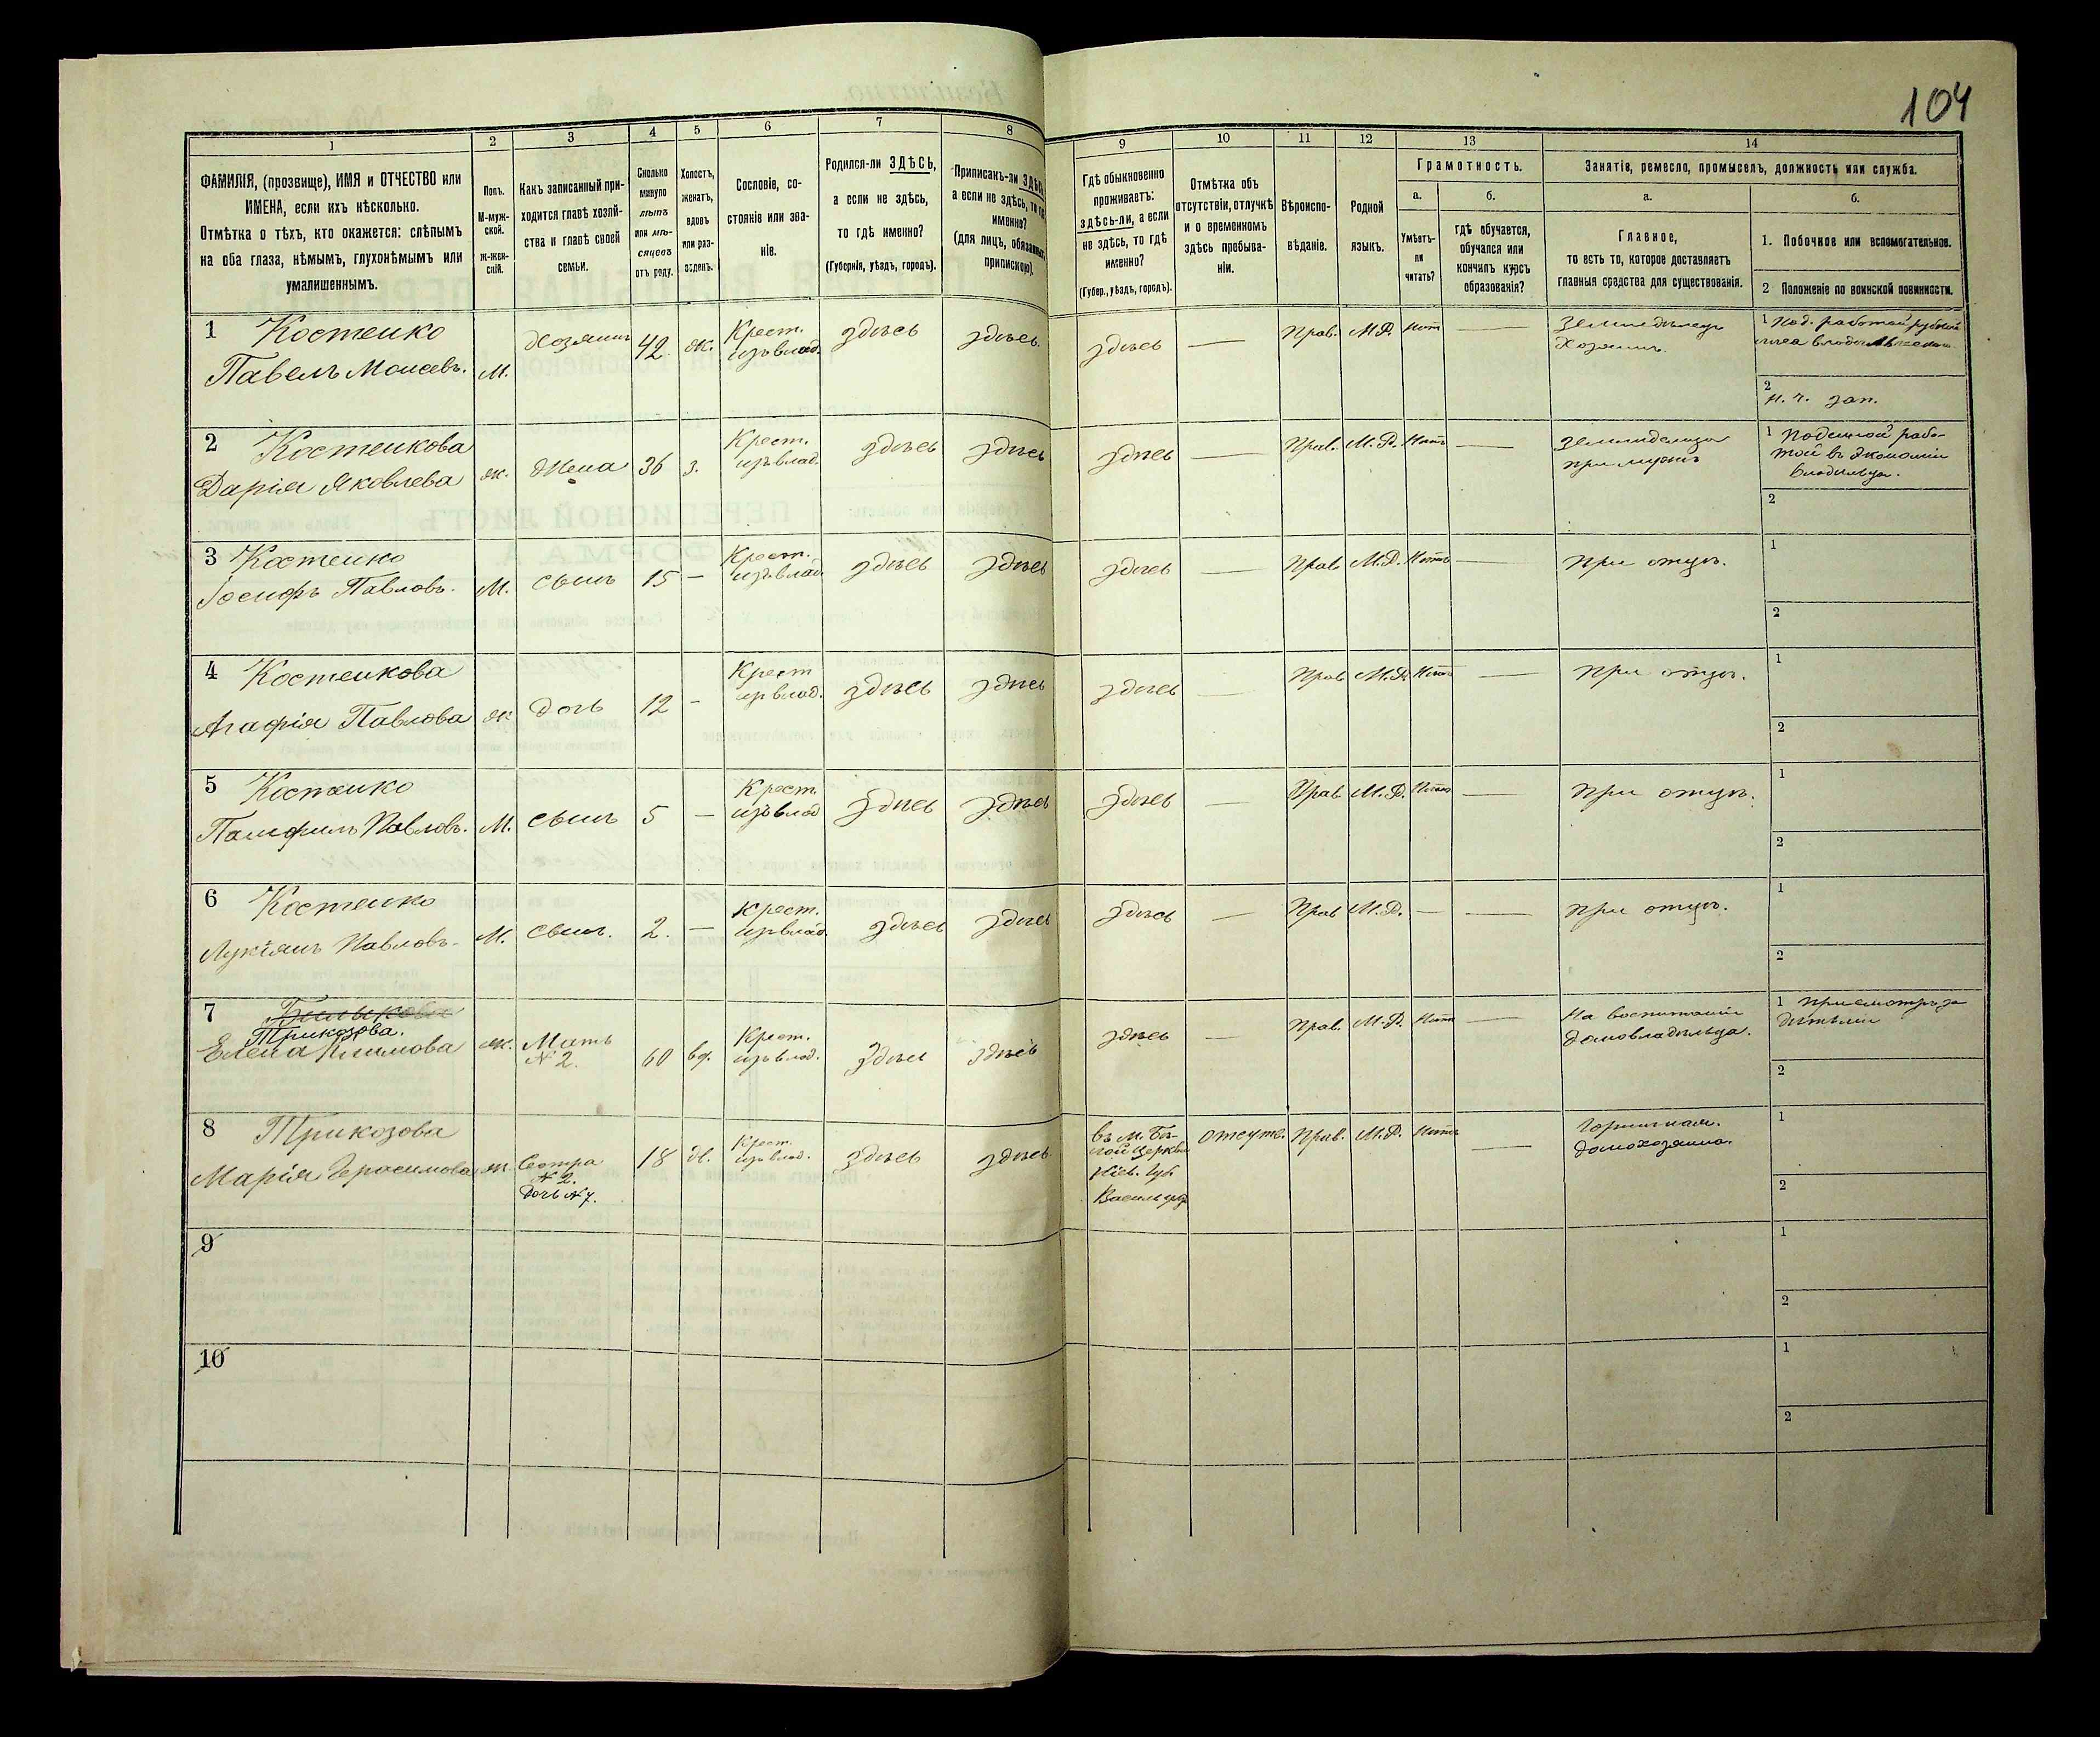 104
1
2
3
4
5
6
7
8
9
10
11
12
13
14
ФАМИЛІЯ, (прозвище), ИМЯ и ОТЧЕСТВО или
ИМЕНА, если ихъ нѣсколько.
Отмѣтка о тѣхъ, кто окажется: слѣпымъ
на оба глаза, нѣмымъ, глухонѣмымъ или
умалишеннымъ.
Полъ.
М-муж-
ской.
Ж-жен-
скій.
Какъ записанный при-
ходится главѣ хозяй-
ства и главѣ своей
семьи.
Сколько
минуло
лѣтъ
или мѣ-
сяцевъ
отъ роду.
Холостъ,
женатъ,
вдовъ
или раз-
веденъ.
Сословіе, со-
стояніе или зва-
ніе.
Родился-ли ЗДѢСЬ,
а если не здѣсь,
то гдѣ именно?
(Губернія, уѣздъ, городъ).
Приписанъ-ли ЗДѢСЬ,
а если не здѣсь, то гдѣ
именно?
(для лицъ, обязанныхъ
припискою).
Гдѣ обыкновенно
проживаетъ:
здѣсь-ли, а если
не здѣсь, то гдѣ
именно?
(Губер., уѣздъ, городъ).
Отмѣтка объ
отсутствіи, отлучкѣ
и о временномъ
здѣсь пребыва-
ніи.
Вѣроиспо-
вѣданіе.
Родной
языкъ.
Грамотность.
а.
б.
Умѣетъ-
ли
читать?
гдѣ обучается,
обучался или
кончилъ курсъ
образованія?
Занятія, ремесло, промыселъ, должность или служба.
а.
б.
Главное,
то есть то, которое доставляетъ
главныя средства для существованія.
1. Побочное или вспомогательное.
2 Положеніе по воинской повинности.
1 Костенко
Павелъ Моисеевъ.
М.
Хозяинъ
42.
ж.
Крест.
изъ влад.
здѣсь
здѣсь.
здѣсь
—
Прав.
М.Р.
нѣтъ
—
Земледѣлецъ
Хозяинъ.
1
2
н. ч. зап.
2 Костенкова
Дарія Яковлева
ж.
жена
36
з.
Крест.
изъ влад.
здѣсь
здѣсь
здѣсь
—
Прав.
М.Р.
нѣтъ
—
при мужѣ
1 Поденной рабо-
той въ экономіи
владѣльца.
2
3 Костенко
Іосифъ Павловъ.
М.
сынъ
15
—
Крест.
изъ влад.
здѣсь
здѣсь
здѣсь
—
Прав.
М.Р.
нѣтъ
—
При отцѣ.
1
2
4 Костенкова
Агафія Павлова
ж
дочь
12
-
Крест
изъ влад.
здѣсь
здѣсь
здѣсь
—
Прав
М.Р
нѣтъ
—
При отцѣ.
1
2
5 Костенко
Памфилъ Павловъ.
М.
сынъ
5
—
Крест.
изъ влад
здѣсь
здѣсь
здѣсь
—
Прав.
М.Р.
нѣтъ
—
При отцѣ.
1
2
6 Костенко
Лукіянъ Павловъ.
М.
сынъ.
2.
—
Крест.
изъ влад.
здѣсь
здѣсь
здѣсь
—
Прав
М.Р.
—
—
При отцѣ.
1
2
7
Трикозова.
Елена Климова
ж.
Мать
№ 2.
60
вд.
Крест.
изъ влад.
здѣсь
здѣсь
здѣсь
—
Прав.
М.Р.
нѣтъ
—
На воспитаніи
домовладѣльца.
1 Присмотръ за
дѣтьми
2
8 Трикозова
Марія Герасимова
ж.
Сестра
№ 2.
дочь № 7.
18
д.
Крест.
изъ влад.
здѣсь
здѣсь
въ м. Бѣ-
лой Церкви
Кіев. губ
Васильк. уѣз.
отсутв.
Прав.
М.Р.
нѣтъ
—
Горничная.
домохозяина.
1
2
9
1
2
10
1
2